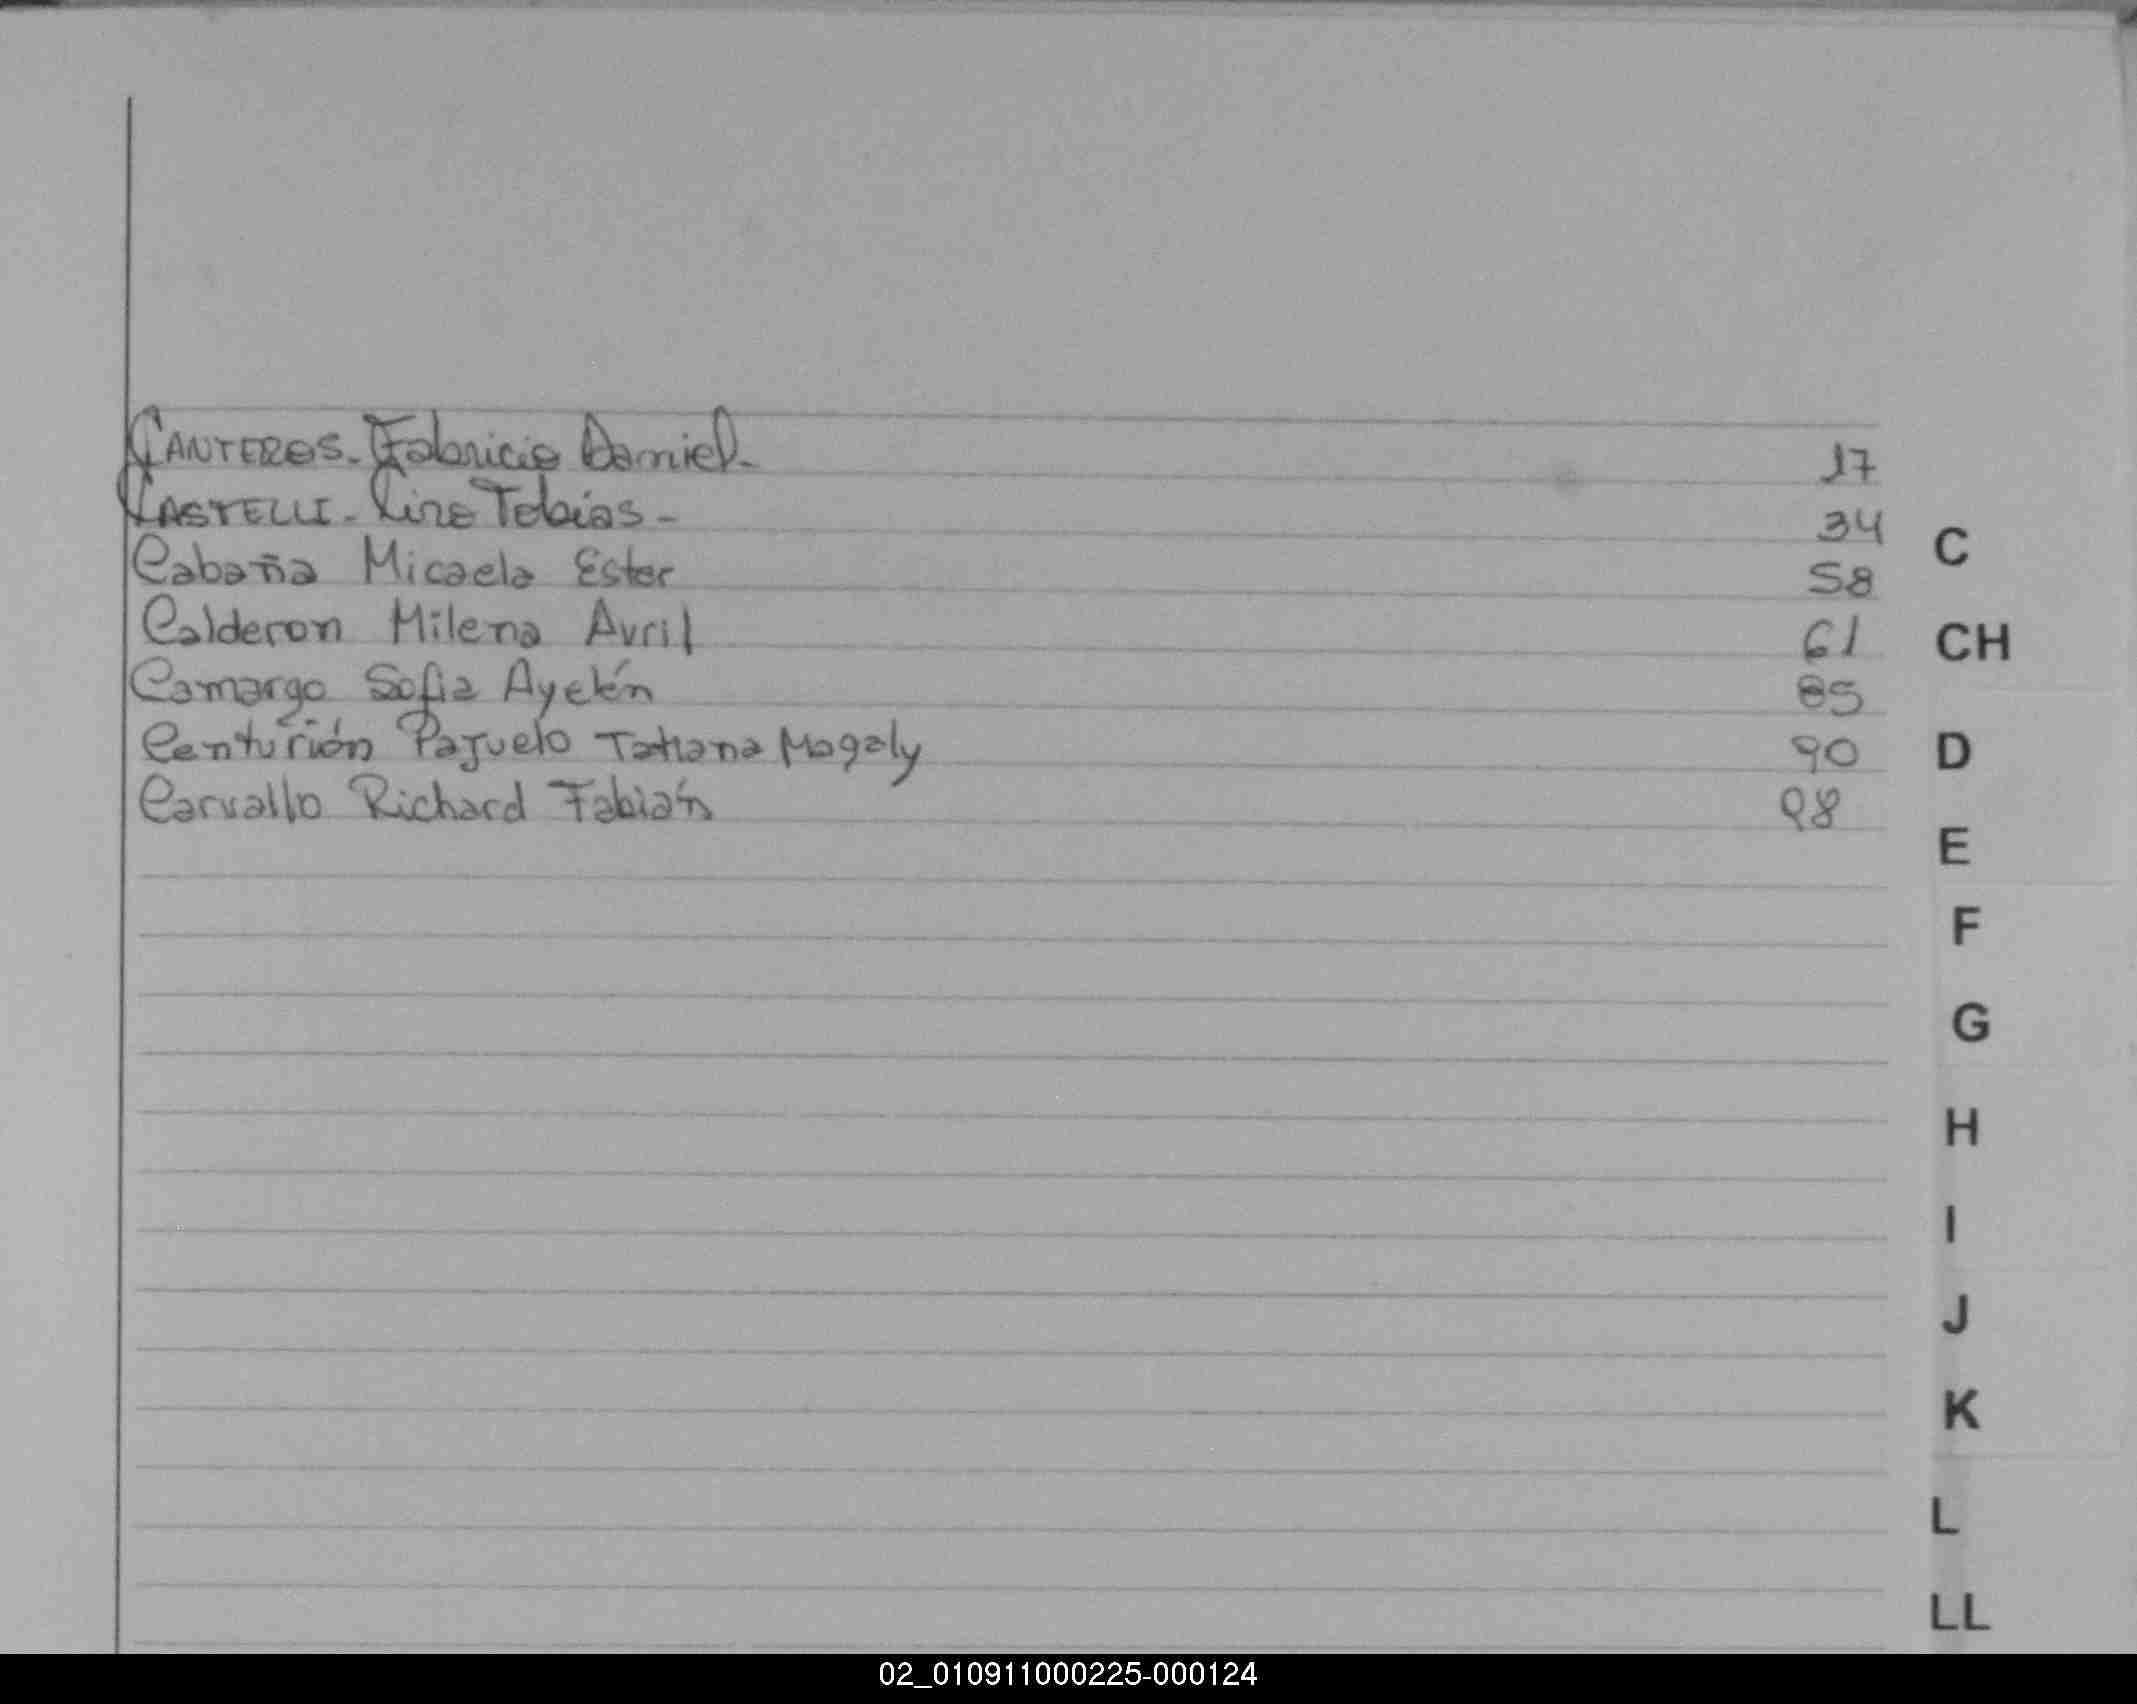 CANTEROS. Fabricio Damiel. 17
CASTELLI. Ciro Tobías. 34
Cabaña Micaela Ester 58
Calderon Milena Avril 61
Camargo Sofia Ayelén 85
Centurión Pajuelo Tatiana Magaly 90
Carvallo Richard Fabián 98
C
CH
D
E
F
G
H
I
J
K
L
LL
02_010911000225-000124